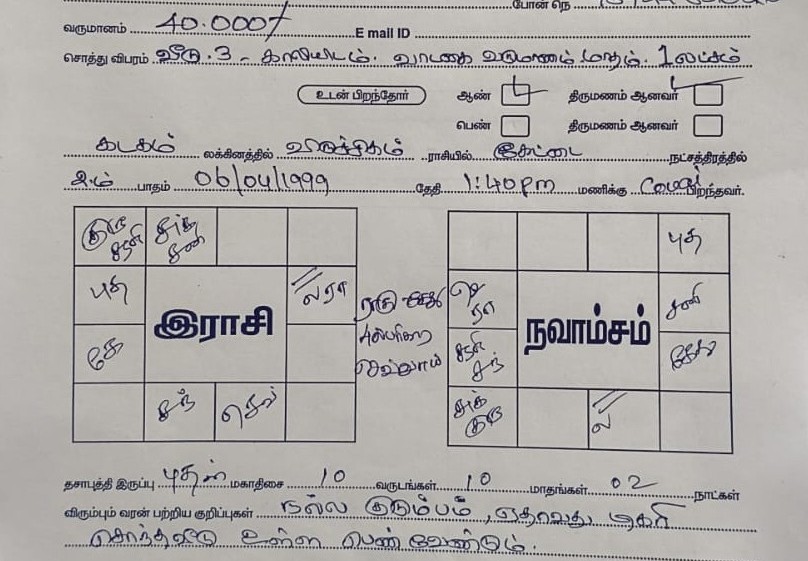 போன் நெ
வருமானம் 40.000/ E mail ID
சொத்து விபரம் வீடு.3 - காலியிடம். வாடகை வருமானம் மாதம். 1 லட்சம்
உடன் பிறந்தோர் ஆண் திருமணம் ஆனவர்
பெண் திருமணம் ஆனவர்
கடகம் லக்கினத்தில் விருச்சிகம் ராசியில் கேட்டை நட்சத்திரத்தில்
2.ம் பாதம் 06/04/1999 தேதி 1:40pm மணிக்கு பிறந்தவர்.
குரு சூரி சுக் சனி
புத ல ரா
கே
இராசி
சந் செவ்
ராகு கேது
செவ்வாய்
புத
செ ரா சனி
சூரி சந் கேது
நவாம்சம்
சுக் குரு ல
தசாபுத்தி இருப்பு புதன் மகாதிசை 10 வருடங்கள் 10 மாதங்கள் 02 நாட்கள்
விரும்பும் வரன் பற்றிய குறிப்புகள் நல்ல குடும்பம், ஏதாவது டிகிரி
சொந்தவீடு உள்ள பெண் வேண்டும்.